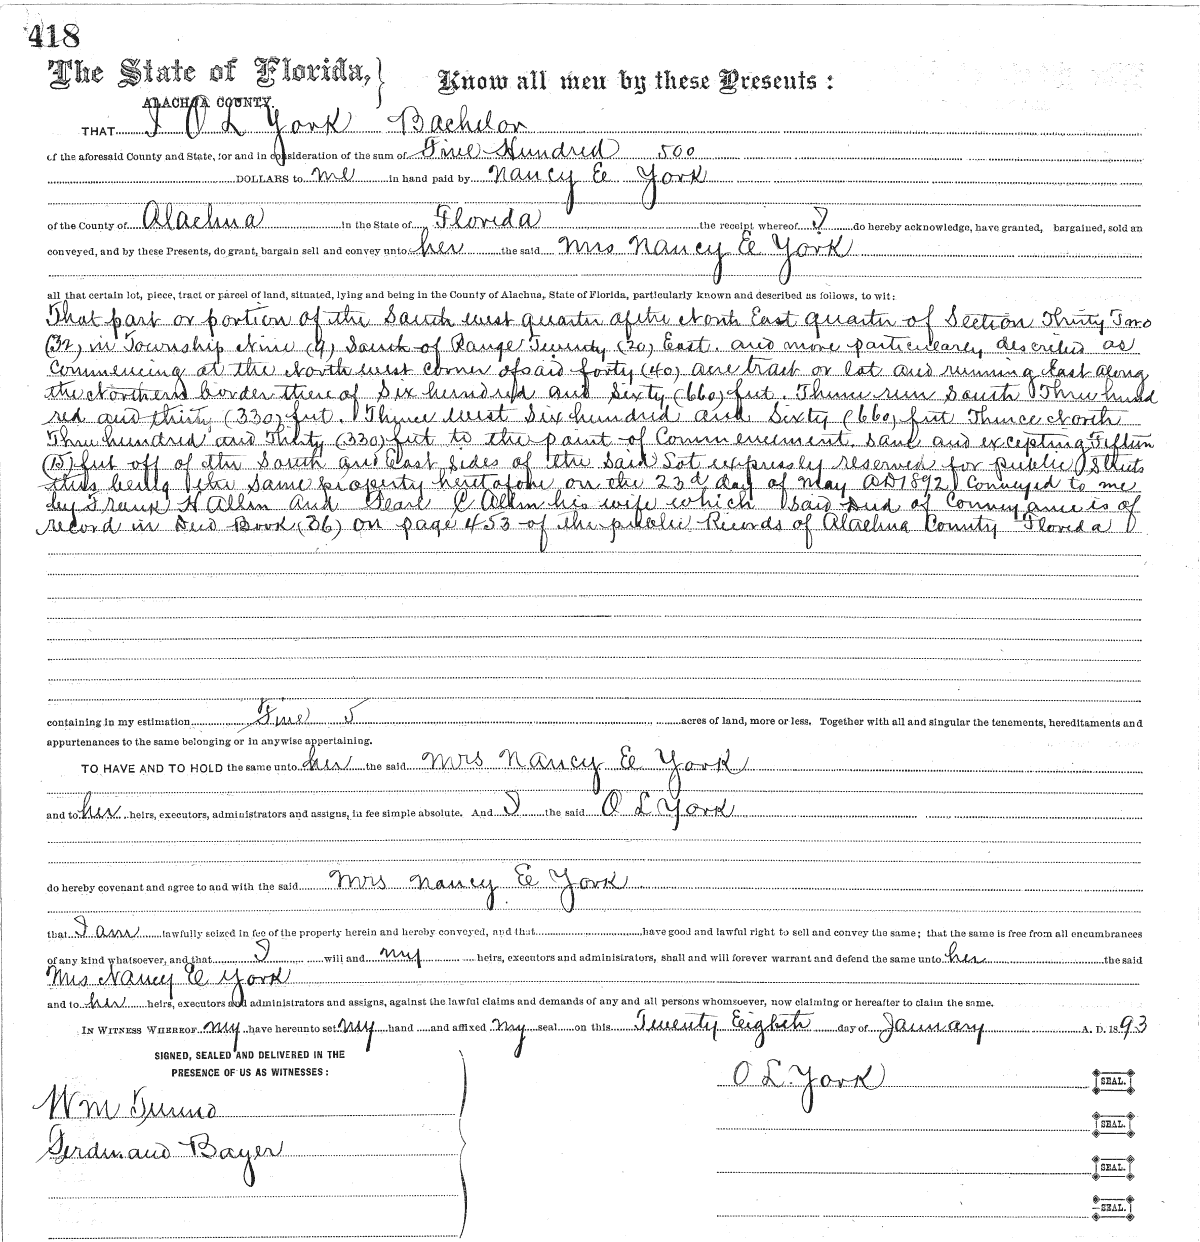 418
The State of Florida, } Know all men by these Presents:
ALACHUA COUNTY.
THAT I O L York Bachelor
of the aforesaid County and State, for and in consideration of the sum of Five Hundred 500
DOLLARS to me in hand paid by Nancy E York
of the County of Alachua in the State of Florida the receipt whereof I do hereby acknowledge, have granted, bargained, sold an
conveyed, and by these Presents, do grant, bargain sell and convey unto her the said Mrs Nancy E York
all that certain lot, piece, tract or parcel of land, situated, lying and being in the County of Alachua, State of Florida, particularly known and described as follows, to wit:
That part or portion of the South west quarter of the North East quarter of Section Thirty Two
(32) in Township Nine (9) South of Range Twenty (20) East. and more particularly described as
Commencing at the North west corner of said forty (40) acre tract or lot and running East along
the Northern border there of Six hundred and Sixty (660) feet. Thence run South Three hund
red and thirty (330) feet. Thence west Six hundred and Sixty (660) feet Thence North
Three hundred and Thirty (330) feet to the point of Commencement. Save and excepting Fifteen
(15) feet off of the South and East Sides of the Said Lot expressly reserved for public Streets
this being the same property heretofore on the 23d day of May AD 1892 Conveyed to me
by Frank H Allen and Pearl C Allen his wife which Said Deed of Conveyance is of
record in Deed Book (36) on page 453 of the public Records of Alachua County Florida
containing in my estimation Five 5 acres of land, more or less. Together with all and singular the tenements, hereditaments and
appurtenances to the same belonging or in anywise appertaining.
TO HAVE AND TO HOLD the same unto her the said Mrs Nancy E York
and to her heirs, executors, administrators and assigns, in fee simple absolute. And I the said O L York
do hereby covenant and agree to and with the said Mrs Nancy E York
that I am lawfully seized in fee of the property herein and hereby conveyed, and that have good and lawful right to sell and convey the same; that the same is free from all encumbrances
of any kind whatsoever, and that I will and my heirs, executors and administrators, shall and will forever warrant and defend the same unto her the said
Mrs Nancy E York
and to her heirs, executors and administrators and assigns, against the lawful claims and demands of any and all persons whomsoever, now claiming or hereafter to claim the same.
IN WITNESS WHEREOF my have hereunto set my hand and affixed my seal on this Twenty Eighth day of January A. D. 1893
SIGNED, SEALED AND DELIVERED IN THE
PRESENCE OF US AS WITNESSES:
O L York SEAL.
Wm
SEAL.
Ferdinand Bayer
SEAL.
SEAL.